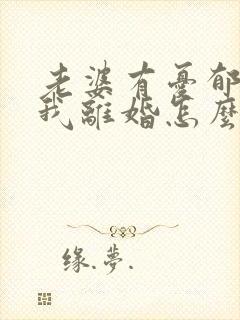 老婆有憂郁
我離婚怎麼
缘.夢.